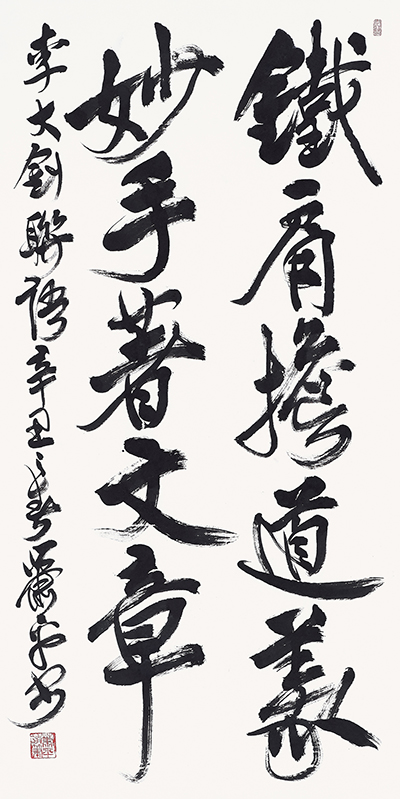 鐵肩擔道義
妙手著文章
李大釗聯語辛丑之春